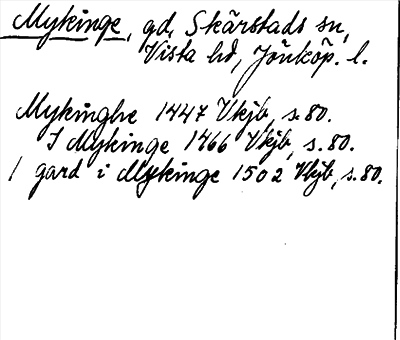 Mykinge, gd, Skärstads sn,
Vista hd, Jönköp. l.
Mykinghe 1447 Vkjb, s. 80.
I Mykinge 1466 Vkjb, s. 80.
1 gard i Mykinge 1502 Vkjb, s. 80.